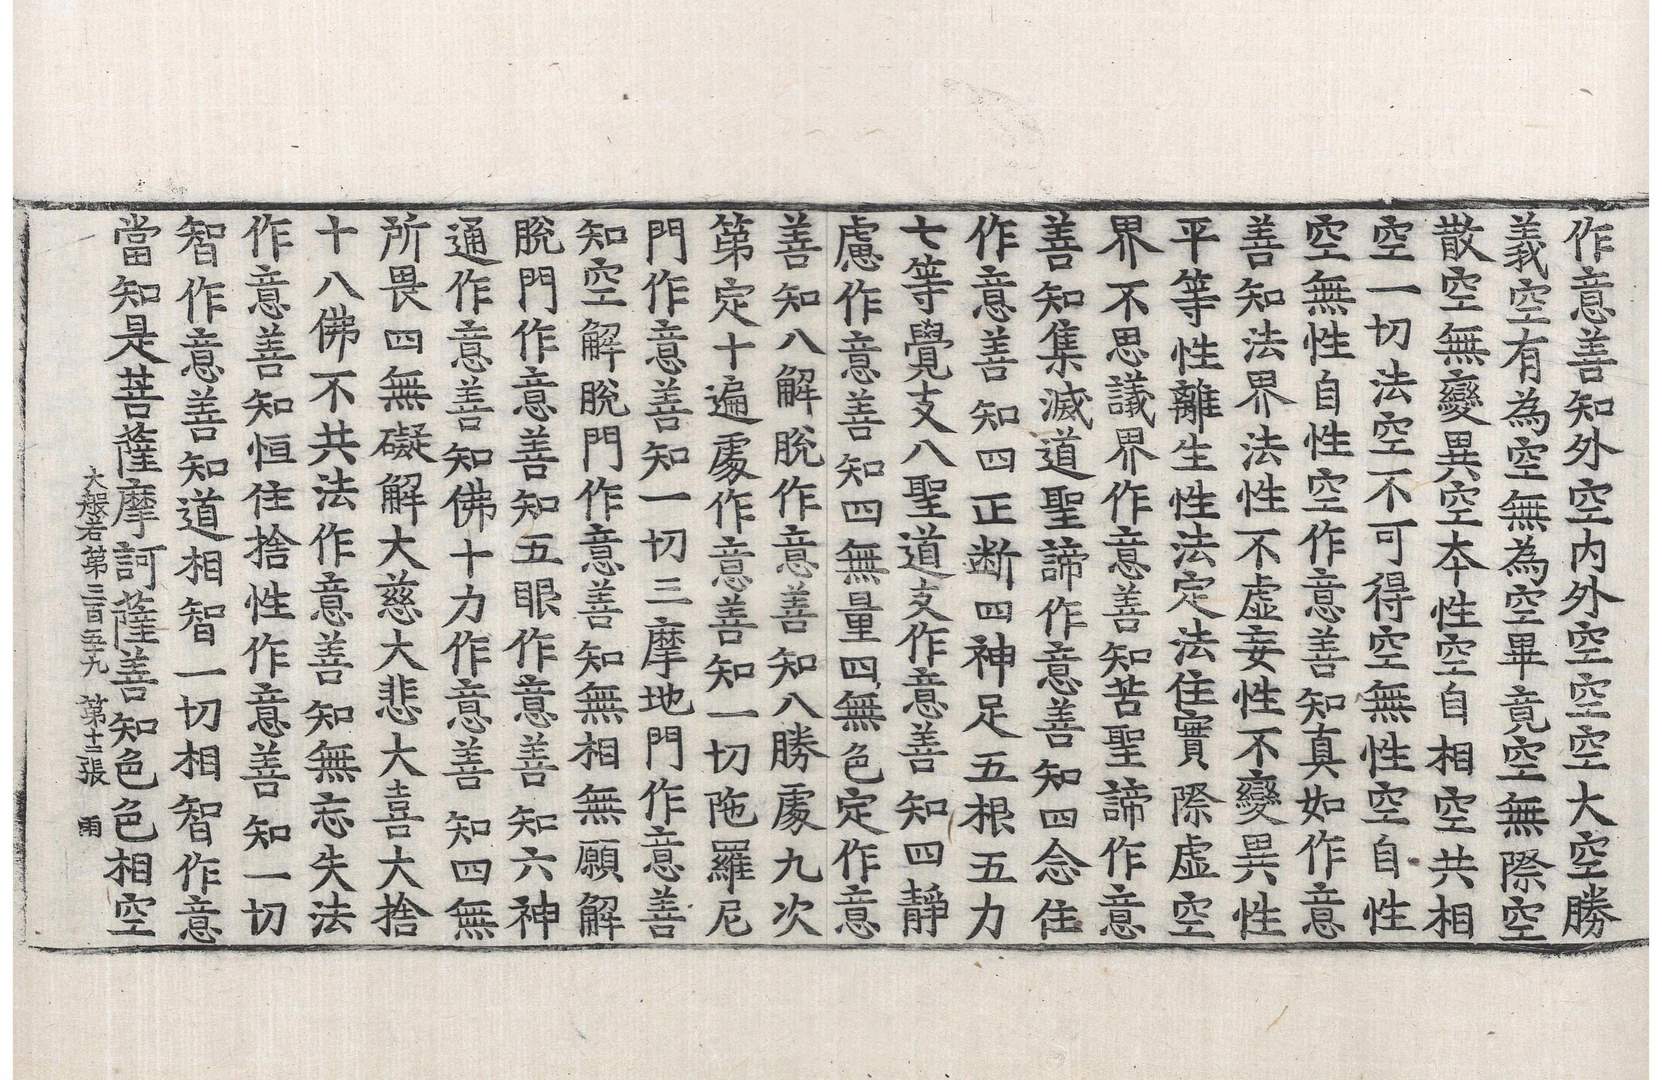 作意善知外空内外空空空大空勝
義空有為空無為空畢竟空無際空
散空無變異空本性空自相空共相
空一切法空不可得空無性空自性
空無性自性空作意善知真如作意
善知法界法性不虛妄性不變異性
平等性離生性法定法住實際虛空
界不思議界作意善知苦聖諦作意
善知集滅道聖諦作意善知四念住
作意善知四正断四神足五根五力
七等覺支八聖道支作意善知四靜
慮作意善知四無量四無色定作意
善知八解脫作意善知八勝處九次
第定十遍處作意善知一切陁羅尼
門作意善知一切三摩地門作意善
知空解脫門作意善知無相無願解
脫門作意善知五眼作意善知六神
通作意善知佛十力作意善知四無
所畏四無礙解大慈大悲大喜大捨
十八佛不共法作意善知無忘失法
作意善知恒住捨性作意善知一切
智作意善知道相智一切相智作意
當知是菩薩摩訶薩善知色色相空
大般若第三百五十九 第十二張 雨